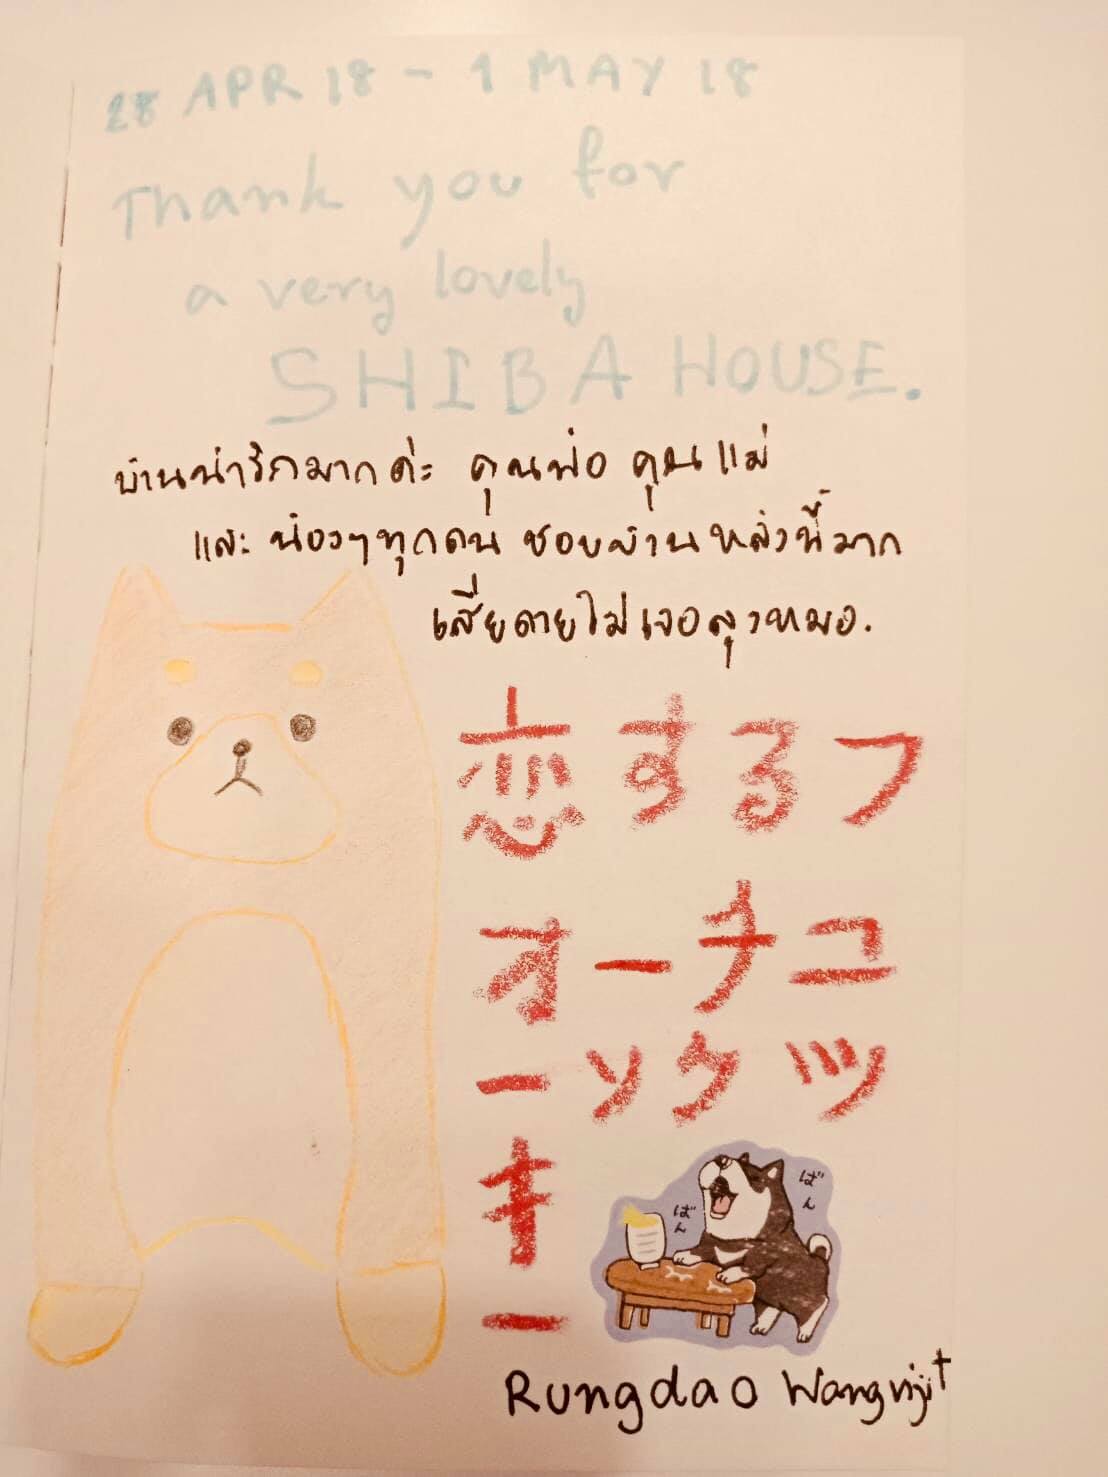 28 APR 18 - 1 MAY 18
Thank you for
a very lovely
SHIBA HOUSE.
บ้านน่ารักมากค่ะ คุณพ่อ คุณแม่
และ น้องๆทุกคน ชอบบ้านหลังนี้มาก
เสียดายไม่เจอลุงหมอ.
恋するフ
オーチュ
ンクッ
キー
ばん
ばん
Rungdao Wangvijit